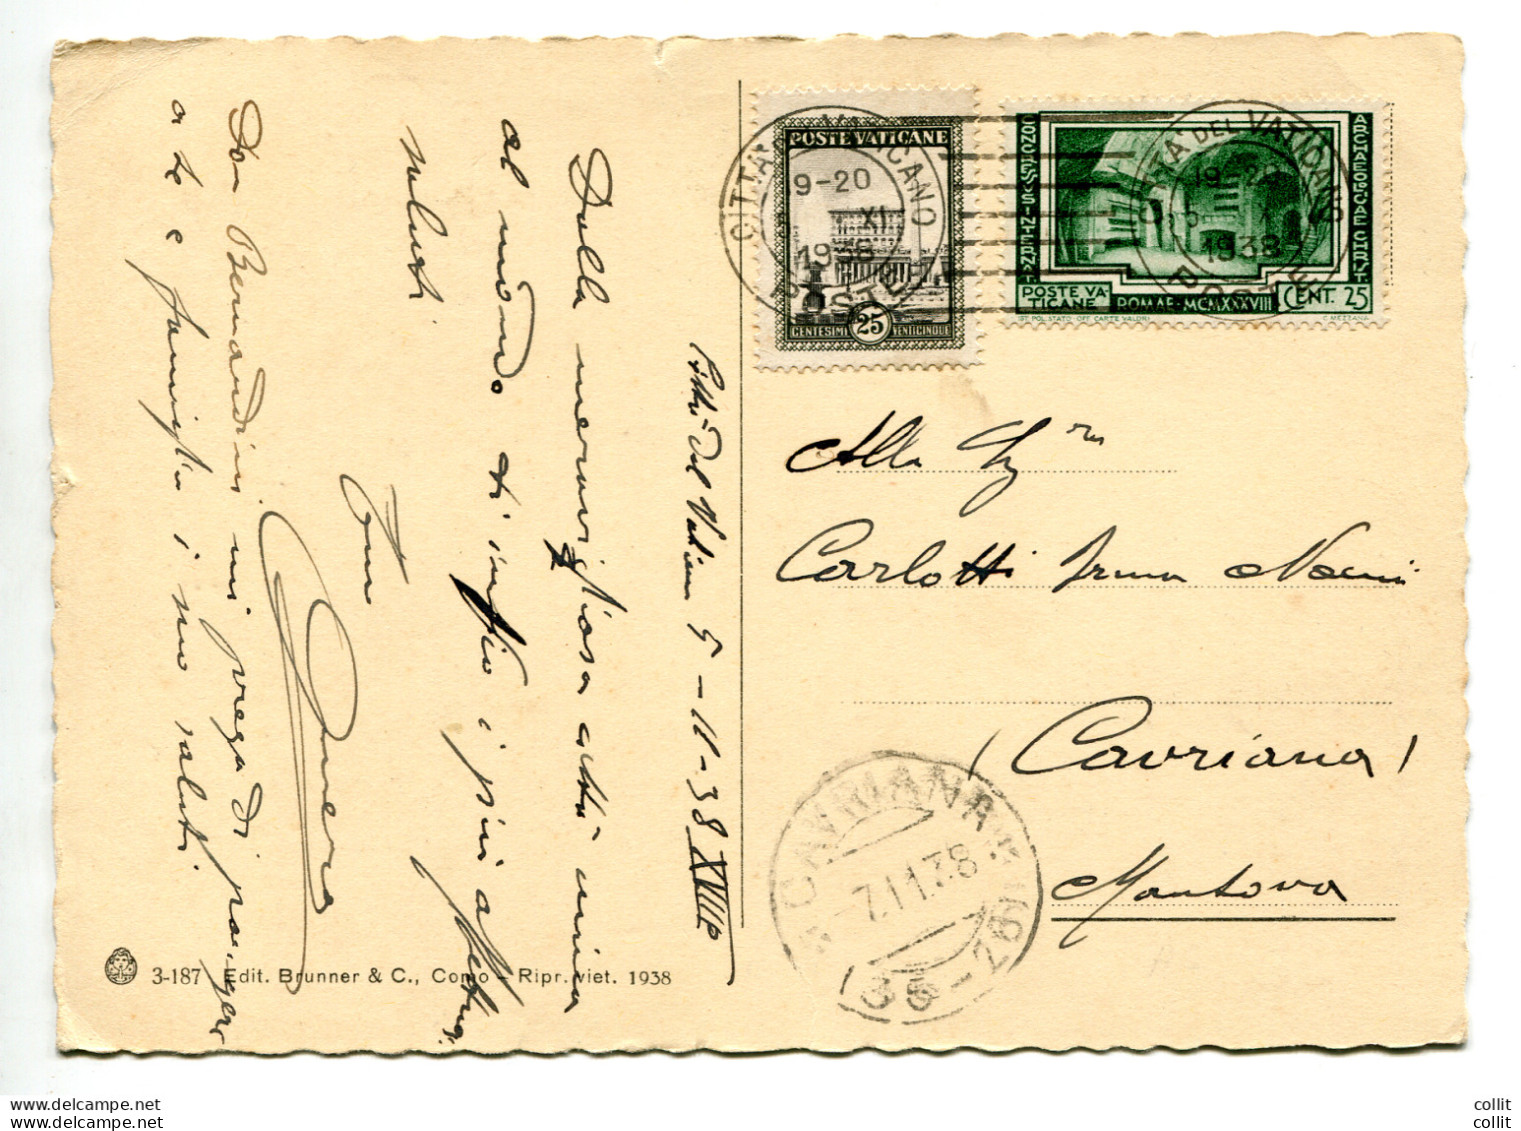 Città del Vaticano 5-11-38 XVIIº
Dalla meravigliosa città unica
al mondo ti invio i più affettuosi
saluti
Tuo
Don Bernardini mi prega di porgere
a te e famiglia i suoi saluti.
CITTA' DEL VATICANO
19-20
XI
1938
POSTE
POSTE VATICANE
CENTESIMI 25 VENTICINQUE
CITTA' DEL VATICANO
19-20
1938
POSTE
CONGRESSVS INTERNAT.
ARCHAEOLOGICAE CHRIST.
POSTE VATICANE
ROMAE·MCMXXXVIII
CENT. 25
IST. POL. STATO - OFF. CARTE VALORI
C. MEZZANA
Alla
Carlotti Irma
(Cavriana)
Mantova
CAVRIANA
7.11.38
3-187 Edit. Brunner & C., Como - Ripr. viet. 1938
www.delcampe.net
www.delcampe.net
collit
collit